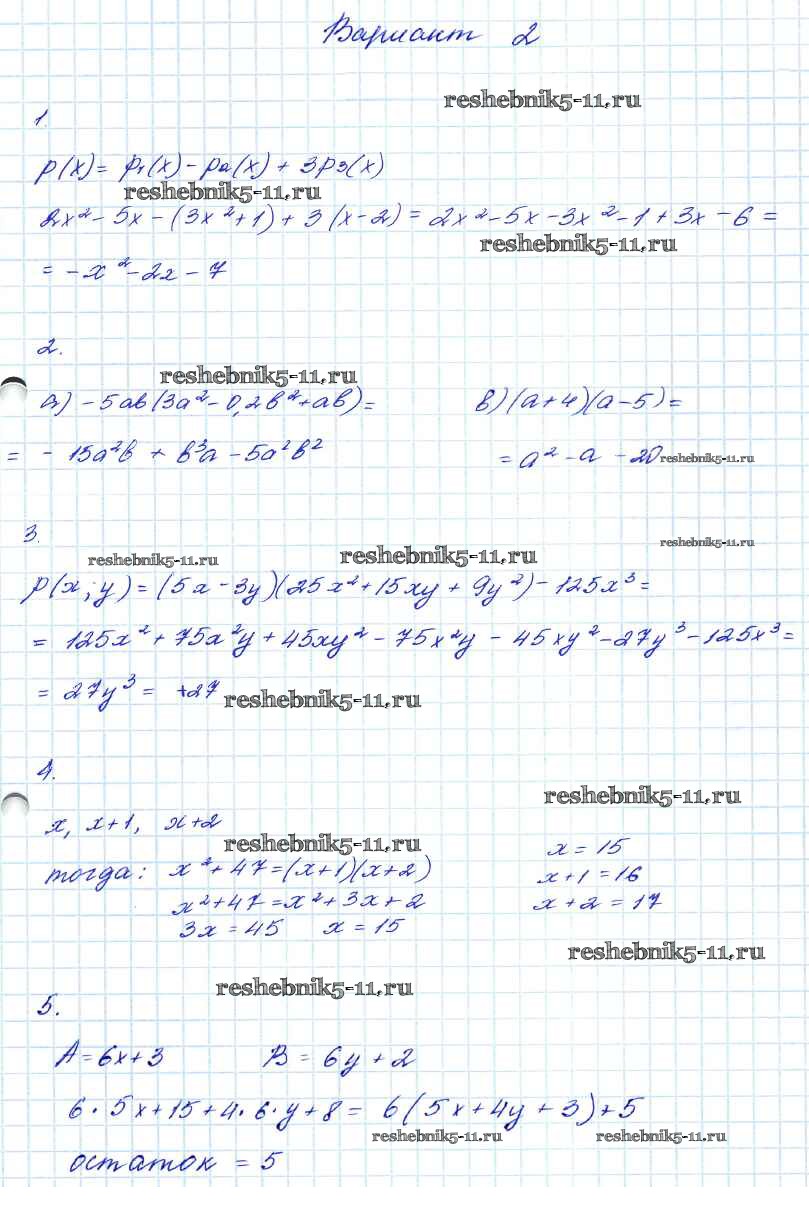 Вариант 2
reshebnik5-11.ru
1.
p(x) = p₁(x) - p₂(x) + 3p₃(x)
reshebnik5-11.ru
2x² - 5x - (3x² + 1) + 3(x - 2) = 2x² - 5x - 3x² - 1 + 3x - 6 =
reshebnik5-11.ru
= -x² - 2x - 7
2.
reshebnik5-11.ru
а) -5ab(3a² - 0,2b² + ab) = в) (a + 4)(a - 5) =
= - 15a²b + b³a - 5a²b² = a² - a - 20 reshebnik5-11.ru
3.
reshebnik5-11.ru
reshebnik5-11.ru reshebnik5-11.ru
p(x; y) = (5x - 3y)(25x² + 15xy + 9y²) - 125x³ =
= 125x² + 75x²y + 45xy² - 75x²y - 45xy² - 27y³ - 125x³ =
= 27y³ = +27 reshebnik5-11.ru
4.
reshebnik5-11.ru
x, x+1, x+2
reshebnik5-11.ru x = 15
тогда: x² + 47 = (x+1)(x+2) x+1 = 16
x² + 47 = x² + 3x + 2 x + 2 = 17
3x = 45 x = 15
reshebnik5-11.ru
reshebnik5-11.ru
5.
A = 6x + 3 B = 6y + 2
6 · 5x + 15 + 4 · 6 · y + 8 = 6(5x + 4y + 3) + 5
reshebnik5-11.ru reshebnik5-11.ru
остаток = 5